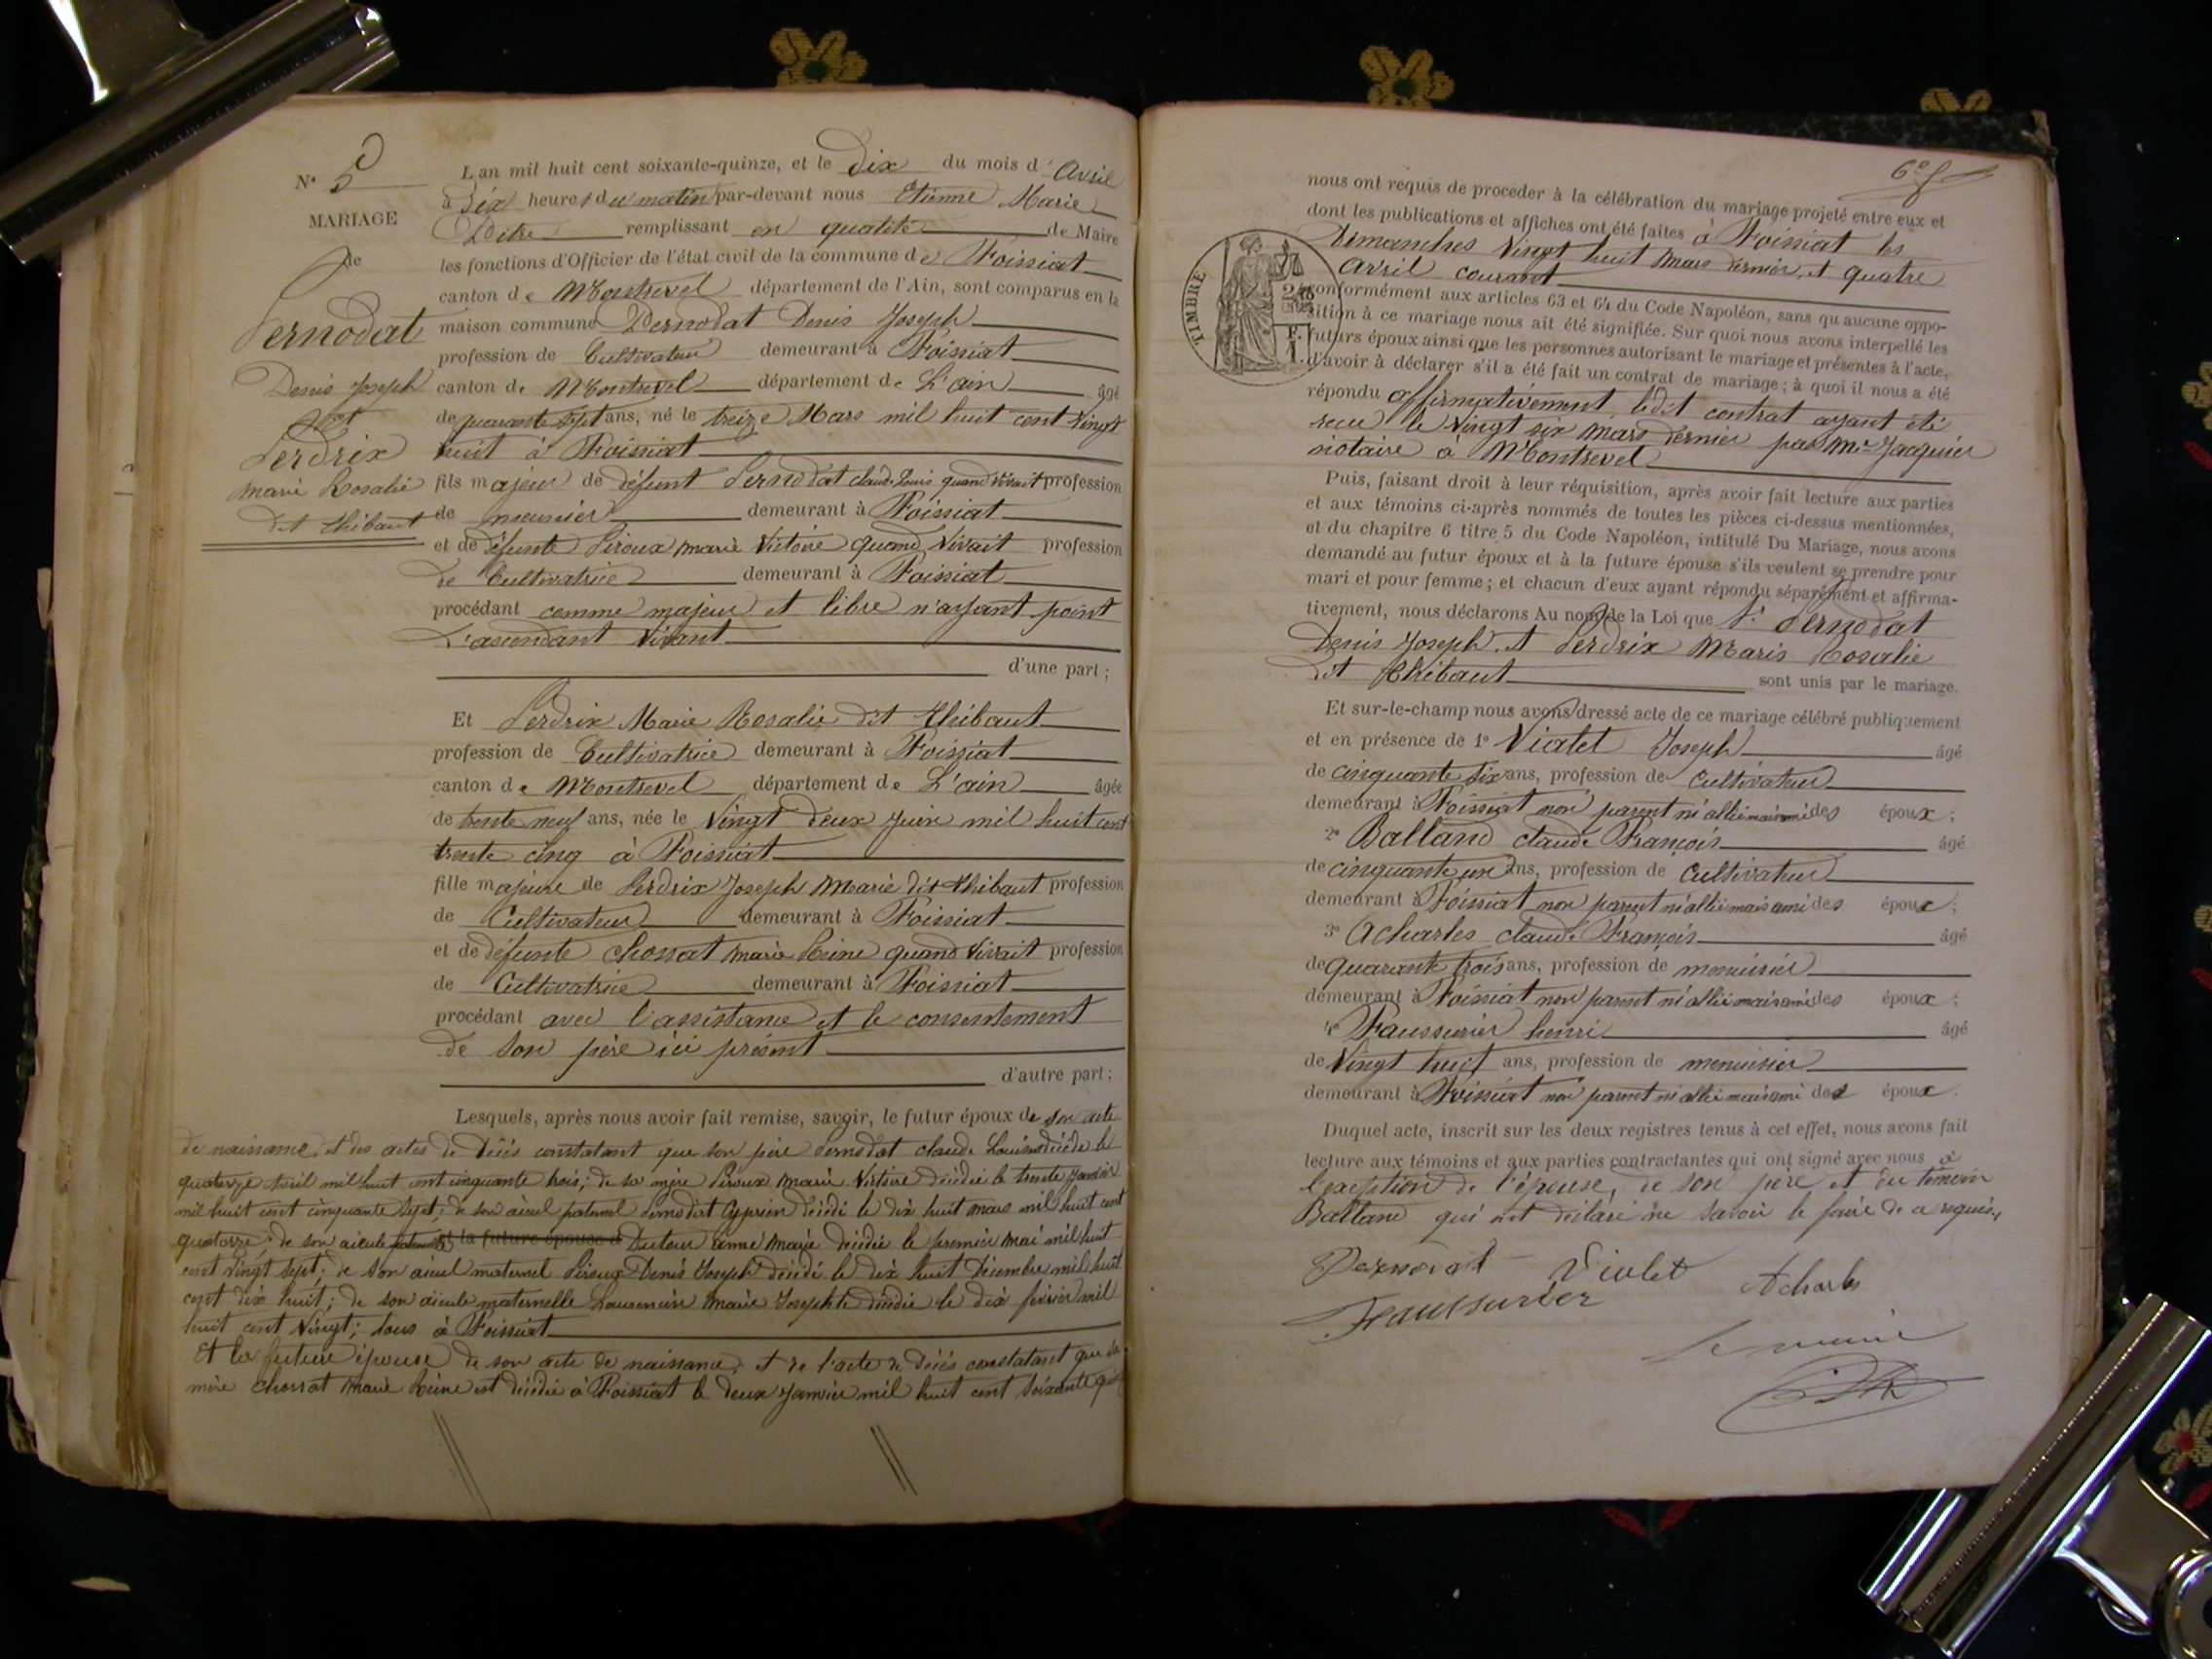 N° 5
MARIAGE
de
Pernodat
Denis Joseph
et
Perdrix
marie Rosalie
dit thibaut
L'an mil huit cent soixante-quinze, et le Dix du mois d' Avril
à Six heures du matin par-devant nous Etienne Marie
remplissant en qualité de Maire
les fonctions d'Officier de l'état civil de la commune de Foissiat
canton de Montrevel département de l'Ain, sont comparus en la
maison commune Pernodat Denis Joseph
profession de Cultivateur demeurant à Foissiat
canton de Montrevel département de L'ain âgé
de quarante sept ans, né le treize Mars mil huit cent vingt
huit à Foissiat
fils majeur de défunt Pernodat claude Louis quand vivait profession
de meunier demeurant à Foissiat
et de défunte Piroux marie Victoire quand vivait profession
de Cultivatrice demeurant à Foissiat
procédant comme majeur et libre n'ayant point
d'ascendant vivant
d'une part;
Et Perdrix Marie Rosalie dit thibaut
profession de Cultivatrice demeurant à Foissiat
canton de Montrevel département de L'ain âgée
de trente neuf ans, née le vingt deux juin mil huit cent
trente cinq à Foissiat
fille majeure de Perdrix Joseph Marie dit thibaut profession
de Cultivateur demeurant à Foissiat
et de défunte Chossat marie Reine quand vivait profession
de Cultivatrice demeurant à Foissiat
procédant avec l'assistance et le consentement
de son père ici présent
d'autre part;
Lesquels, après nous avoir fait remise, savoir, le futur époux de son acte
de naissance, et des actes de décès constatant que son père Pernodat claude Louis décédé le
quatorze avril mil huit cent cinquante trois; de sa mère Piroux marie Victoire décédée le trente janvier
mil huit cent cinquante sept; de son aïeul paternel Pernodat Cyprien décédé le dix huit mars mil huit cent
quatorze; de son aïeule et la future épouse d Duteur anne marie décédée le premier mai mil huit
cent vingt sept; de son aïeul maternel Piroux Denis Joseph décédé le dix huit Décembre mil huit
cent dix huit; de son aïeule maternelle marie Josephte décédée le dix février mil
huit cent vingt; tous à Foissiat
Et la future épouse de son acte de naissance, et de l'acte de décès constatant que sa
mère Chossat marie Reine est décédée à Foissiat le deux janvier mil huit cent soixante
nous ont requis de procéder à la célébration du mariage projeté entre eux et
dont les publications et affiches ont été faites à Foissiat les
Dimanches vingt huit mars dernier, et quatre
avril courant
TIMBRE
conformément aux articles 63 et 64 du Code Napoléon, sans qu'aucune oppo-
sition à ce mariage nous ait été signifiée. Sur quoi nous avons interpellé les
futurs époux ainsi que les personnes autorisant le mariage et présentes à l'acte,
d'avoir à déclarer s'il a été fait un contrat de mariage; à quoi il nous a été
répondu affirmativement, ledit contrat ayant été
reçu le vingt six mars dernier par Me Jacquier
notaire à Montrevel
Puis, faisant droit à leur réquisition, après avoir fait lecture aux parties
et aux témoins ci-après nommés de toutes les pièces ci-dessus mentionnées,
et du chapitre 6 titre 5 du Code Napoléon, intitulé Du Mariage, nous avons
demandé au futur époux et à la future épouse s'ils veulent se prendre pour
mari et pour femme; et chacun d'eux ayant répondu séparément et affirma-
tivement, nous déclarons Au nom de la Loi que Sr Pernodat
Denis Joseph et Perdrix Marie Rosalie
dit thibaut sont unis par le mariage.
Et sur-le-champ nous avons dressé acte de ce mariage célébré publiquement
et en présence de 1° Violet Joseph âgé
de cinquante six ans, profession de Cultivateur
demeurant à Foissiat non parent ni allié mais ami des époux;
2° Balland claude François âgé
de cinquante un ans, profession de Cultivateur
demeurant à Foissiat non parent ni allié mais ami des époux;
3° Acharles claude François âgé
de quarante trois ans, profession de menuisier
demeurant à Foissiat non parent ni allié mais ami des époux;
4° Faussurier henri âgé
de vingt huit ans, profession de menuisier
demeurant à Foissiat non parent ni allié mais ami des époux.
Duquel acte, inscrit sur les deux registres tenus à cet effet, nous avons fait
lecture aux témoins et aux parties contractantes qui ont signé avec nous à
l'exeption de l'épouse, de son père et du témoin
Balland qui ont déclaré ne savoir le faire de ce requis,
Pernodat Violet Acharles
Faussurier
Le maire